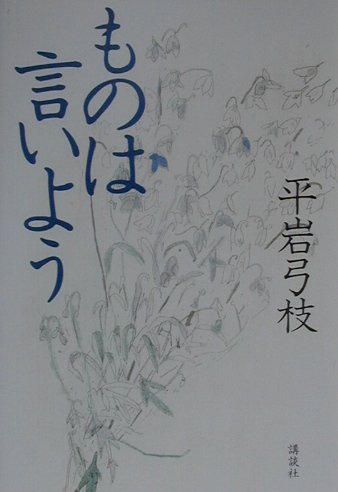 ものは
言いよう
平岩弓枝
講談社